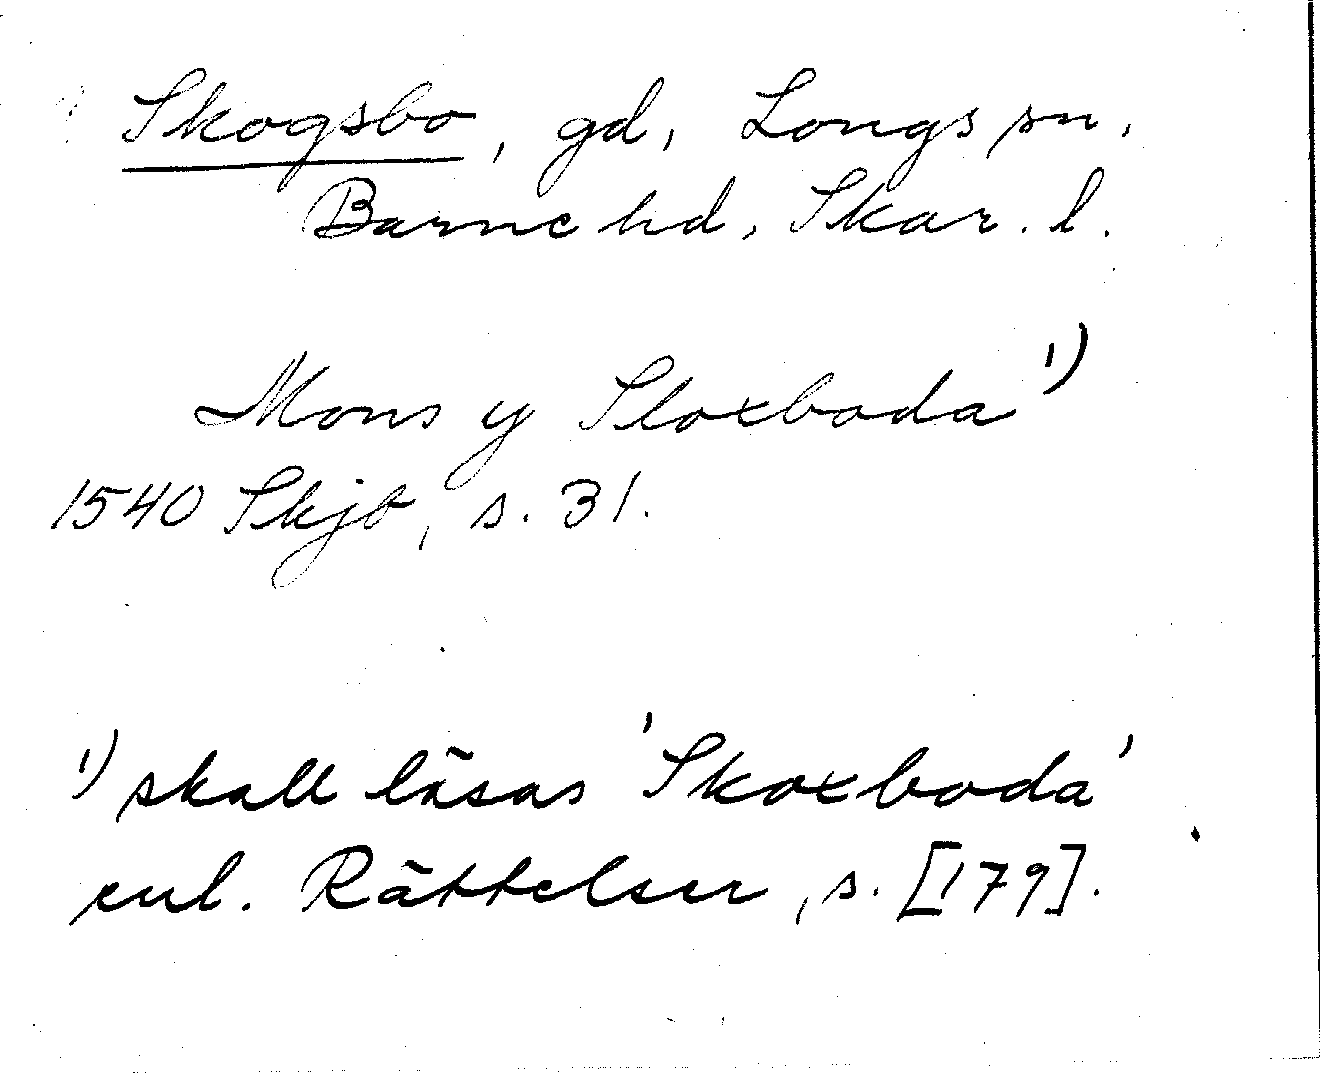 Skogsbo, gd, Longs sn,
Barne hd, Skar. l.
Mons y Sloxboda 1)
1540 Skjb, s. 31.
1) skall läsas 'Skoxboda'
enl. Rättelser, s. [179].